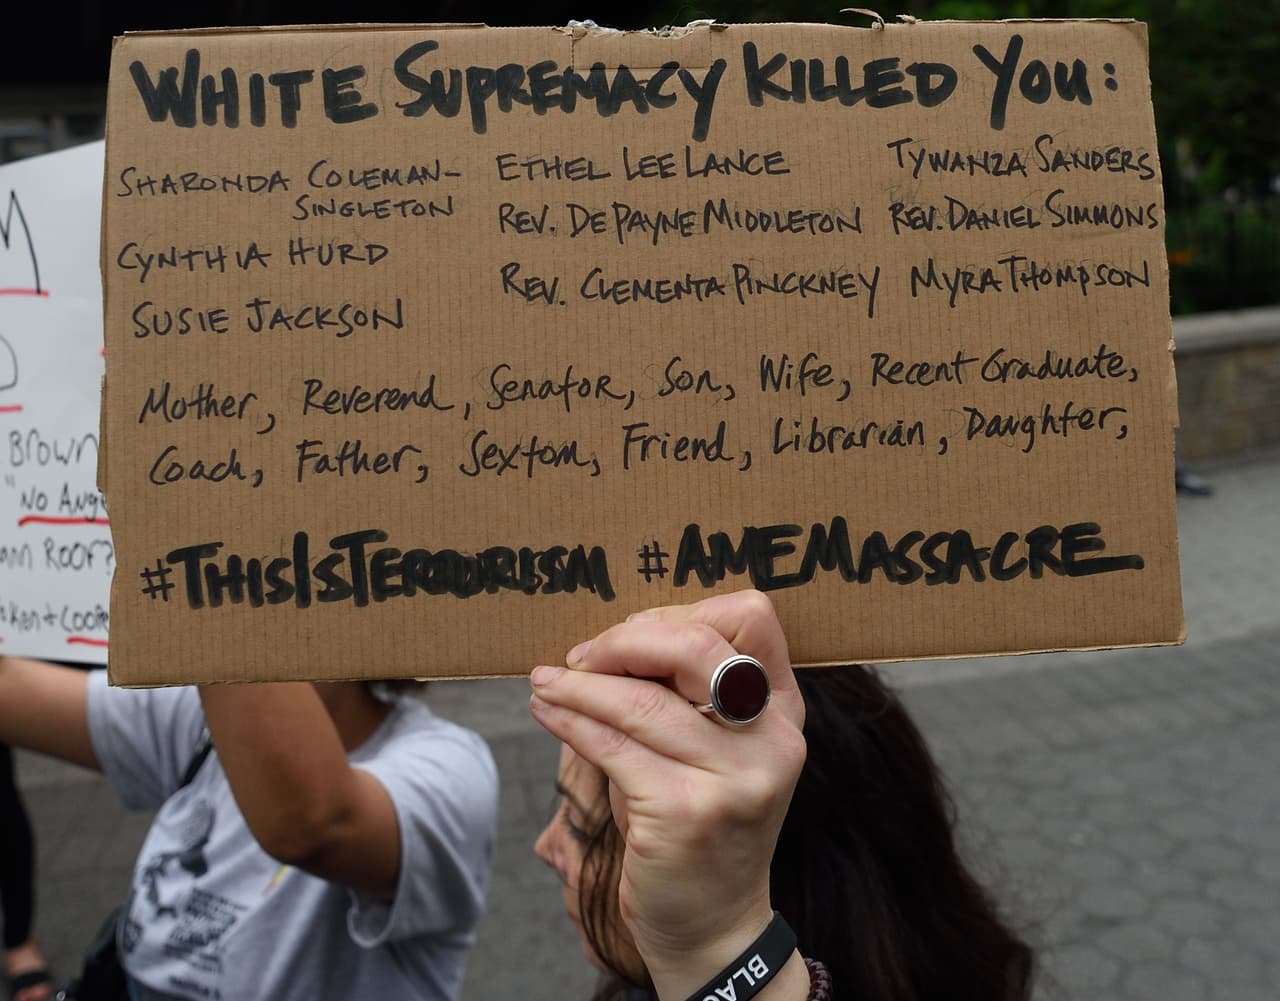 WHITE SUPREMACY KILLED YOU:
SHARONDA COLEMAN-
SINGLETON
CYNTHIA HURD
SUSIE JACKSON
ETHEL LEE LANCE
REV. DEPAYNE MIDDLETON
REV. CLEMENTA PINCKNEY
TYWANZA SANDERS
REV. DANIEL SIMMONS
MYRA THOMPSON
Mother, Reverend, Senator, Son, Wife, Recent Graduate,
Coach, Father, Sexton, Friend, Librarian, Daughter,
#THISISTERRORISM #AMEMASSACRE
Brown
"No Ange
Roof?
BLAC